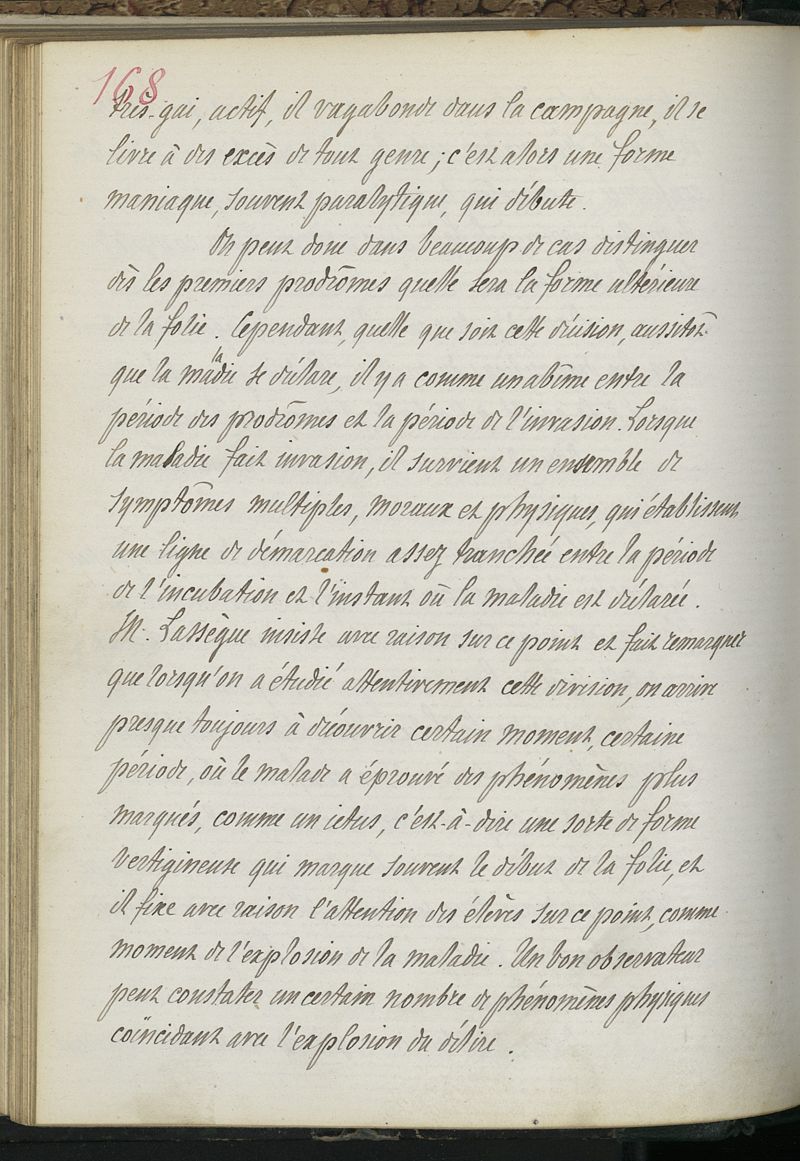 168
très-gai, actif, il vagabonde dans la campagne, il se
livre à des excès de tout genre ; c'est alors une forme
maniaque, souvent paralytique, qui débute.
On peut donc dans beaucoup de cas distinguer
dès les premiers prodrômes quelle sera la forme ultérieure
de la folie. Cependant, quelle que soit cette division, aussitôt
la
que la madie se déclare, il y a comme un abîme entre la
période des prodrômes et la période de l'invasion. Lorsque
la maladie fait invasion, il survient un ensemble de
symptômes multiples, moraux et physiques, qui établissent
une ligne de démarcation assez tranchée entre la période
de l'incubation et l'instant où la maladie est déclarée.
M. Lassègue insiste avec raison sur ce point et fait remarquer
que lorsqu'on a étudié attentivement cette division, on arrive
presque toujours à découvrir certain moment, certaine
période, où le malade a éprouvé des phénomènes plus
marqués, comme un ictus, c'est-à-dire une sorte de forme
vertigineuse qui marque souvent le début de la folie, et
il fixe avec raison l'attention des élèves sur ce point, comme
moment de l'explosion de la maladie. Un bon observateur
peut constater un certain nombre de phénomènes physiques
coïncidant avec l'explosion du délire.